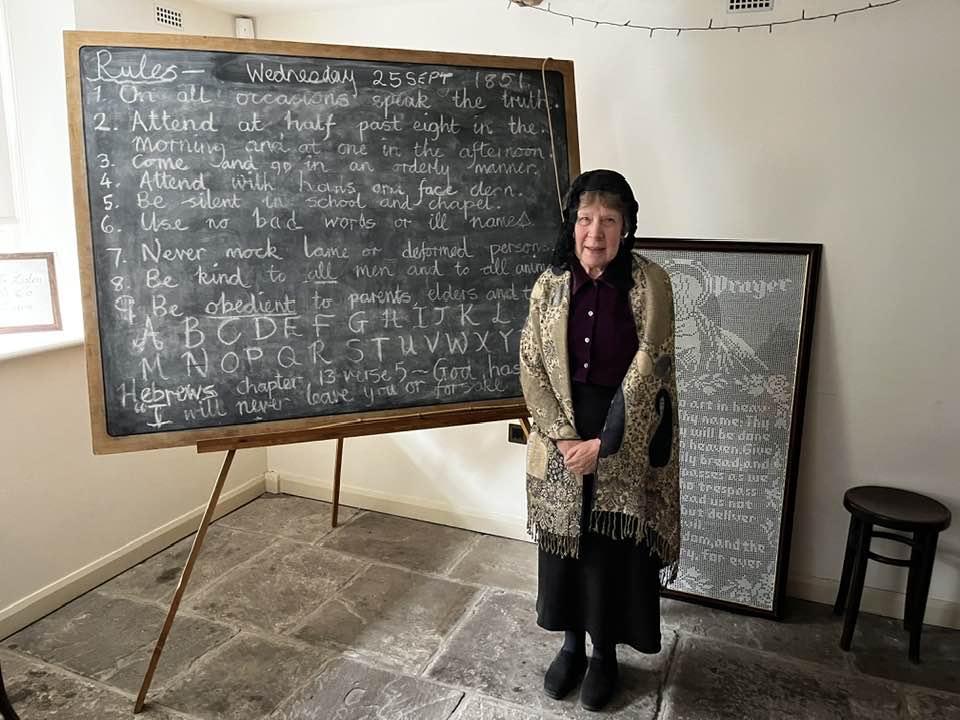 Rules— Wednesday 25 SEPT 1851.
1. On all occasions speak the truth.
2. Attend at half past eight in the
morning and at one in the afternoon.
3. Come and go in an orderly manner.
4. Attend with hans and face clen.
5. Be silent in school and chapel.
6. Use no bad words or ill names
7. Never mock lame or deformed persons
8. Be kind to all men and to all anim
9. Be obedient to parents, elders and t
A B C D E F G H I J K L
M N O P Q R S T U V W X Y
Hebrews chapter 13 verse 5 ~ God has
"I will never leave you or forsake
Prayer
art in heav
hy name: Thy
y will be done
heaven. Give
ly bread, and
passes as we
trespass
ead us not
but deliver
vil
dom, and the
ry, for ever